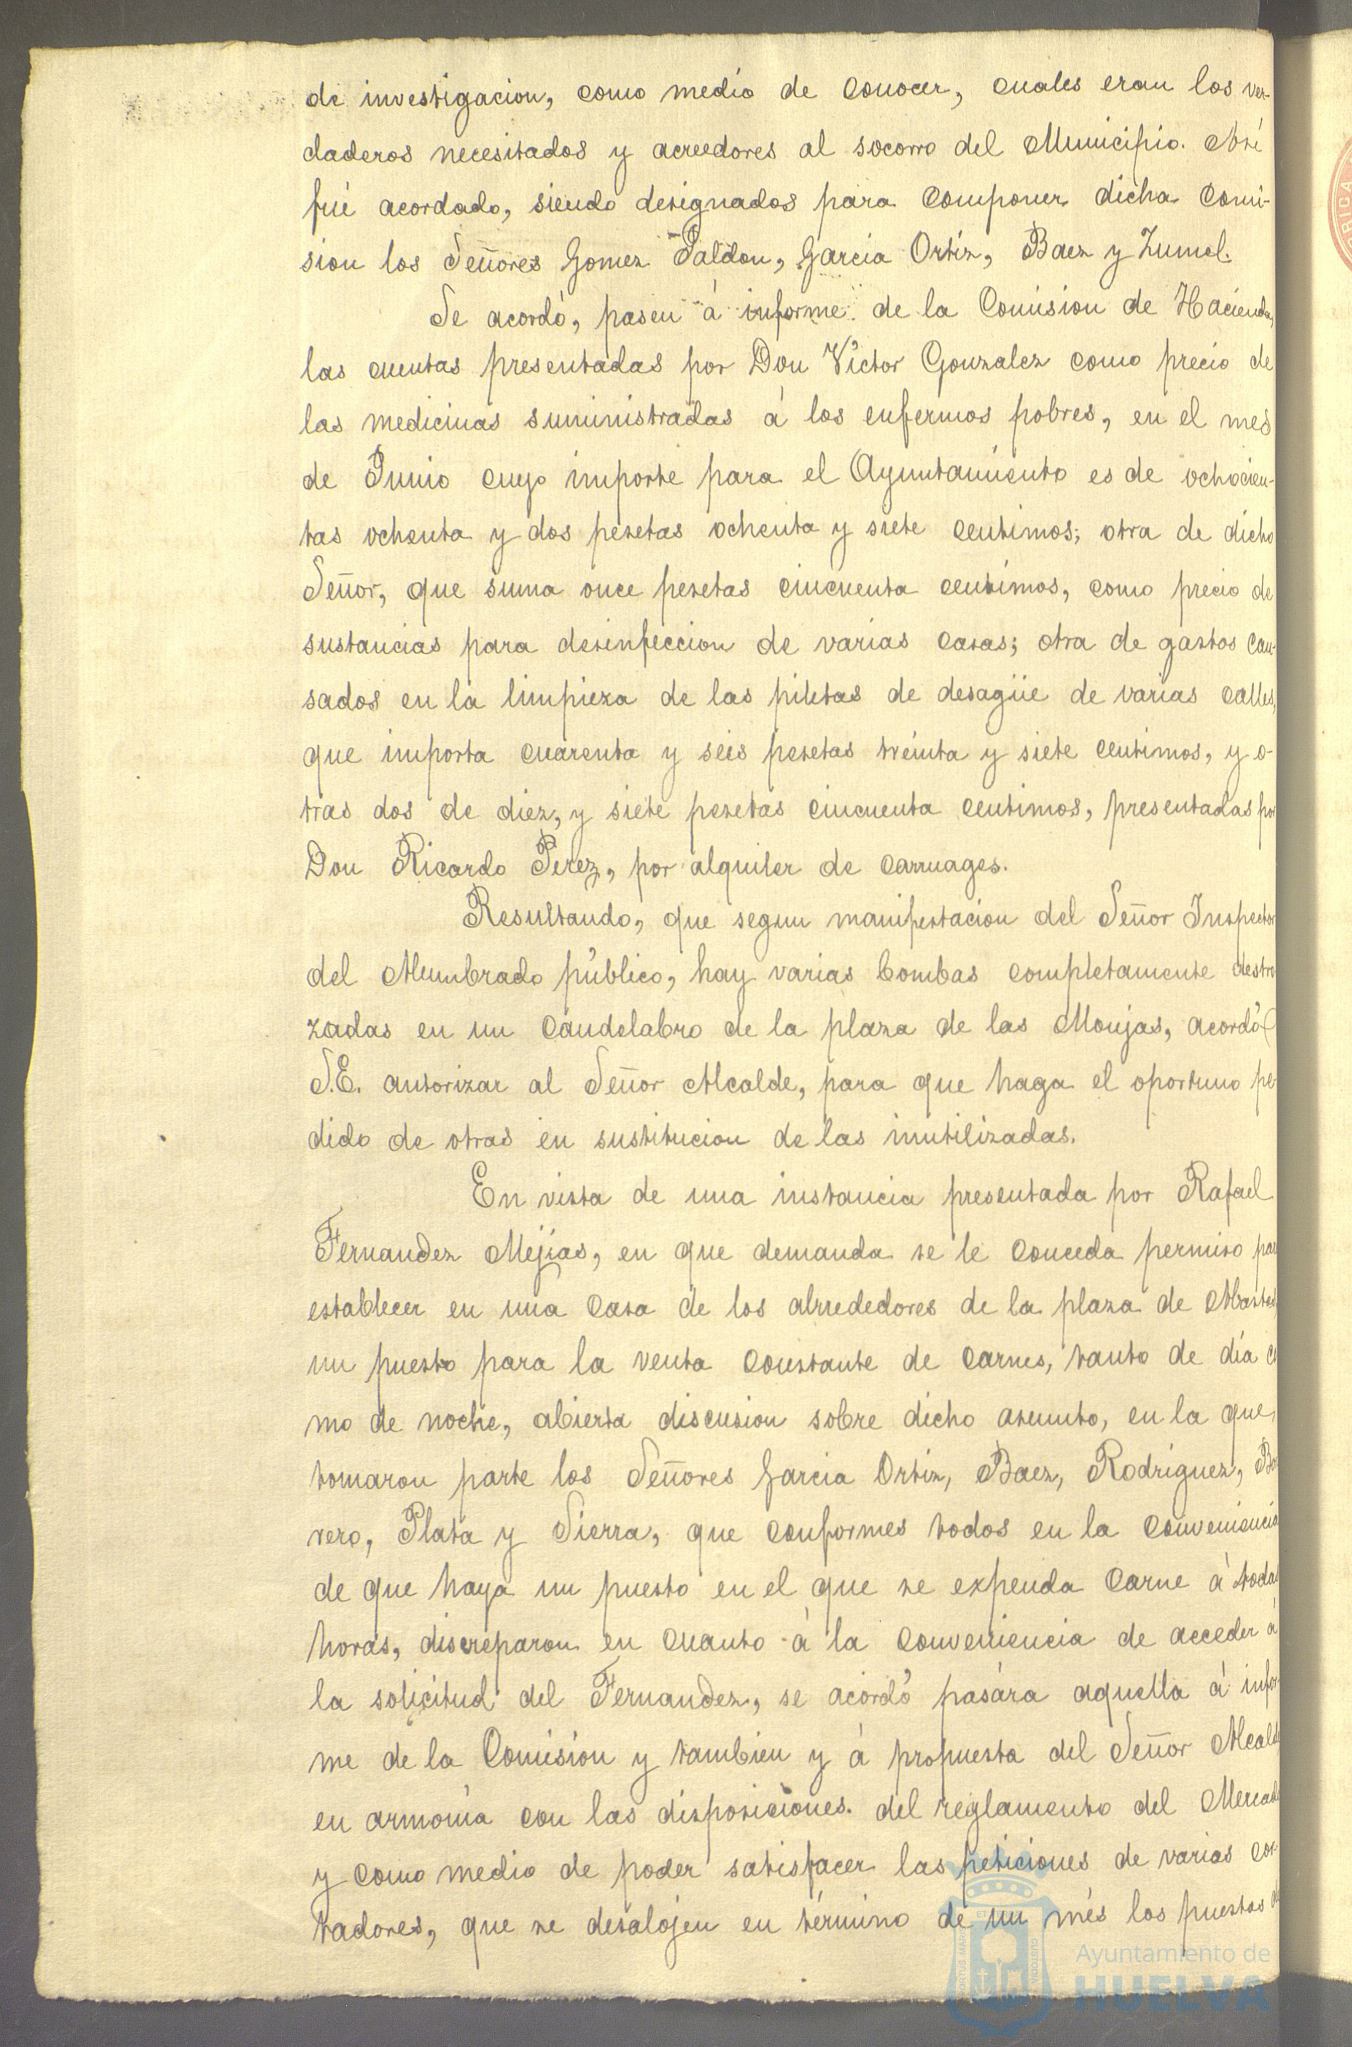 de investigacion, como medio de conocer, cuales eran los ver-
daderos necesitados y acreedores al socorro del Municipio. Así
fué acordado, siendo designados para componer dicha comi-
sion los Señores Gomez Saldon, Garcia Ortiz, Baez y Zumel.
Se acordó, pasen á informe de la Comision de Hacienda,
las cuentas presentadas por Don Víctor Gonzalez como precio de
las medicinas suministradas á los enfermos pobres, en el mes
de Junio cuyo importe para el Ayuntamiento es de ochocien-
tas ochenta y dos pesetas ochenta y siete centimos; otra de dicho
Señor, que suma once pesetas cincuenta centimos, como precio de
sustancias para desinfeccion de varias casas; otra de gastos cau-
sados en la limpieza de las piletas de desagüe de varias calles,
que importa cuarenta y seis pesetas treinta y siete centimos, y o-
tras dos de diez, y siete pesetas cincuenta centimos, presentadas por
Don Ricardo Perez, por alquiler de carruages.
Resultando, que segun manifestacion del Señor Inspector
del Alumbrado público, hay varias bombas completamente destro
zadas en un candelabro de la plaza de las Monjas, acordó
S.E. autorizar al Señor Alcalde, para que haga el oportuno pe
dido de otras en sustitucion de las inutilizadas.
En vista de una instancia presentada por Rafael
Fernandez Mejías, en que demanda se le conceda permiso para
establecer en una casa de los alrrededores de la plaza de Abastos
un puesto para la venta constante de carnes, tanto de día co
mo de noche, abierta discusion sobre dicho asunto, en la que
tomaron parte los Señores Garcia Ortiz, Baez, Rodriguez,
vero, Plata y Sierra, que conformes todos en la conveniencia
de que haya un puesto en el que se expenda carne á todas
horas, discreparon en cuanto á la conveniencia de acceder á
la solicitud del Fernandez, se acordó pasára aquella á infor
me de la Comision y tambien y á propuesta del Señor Alcalde
en armonía con las disposiciones del reglamento del Mercado
y como medio de poder satisfacer las peticiones de varios cor
tadores, que se desalojen en término de un més los puestos de
Ayuntamiento de
HUELVA